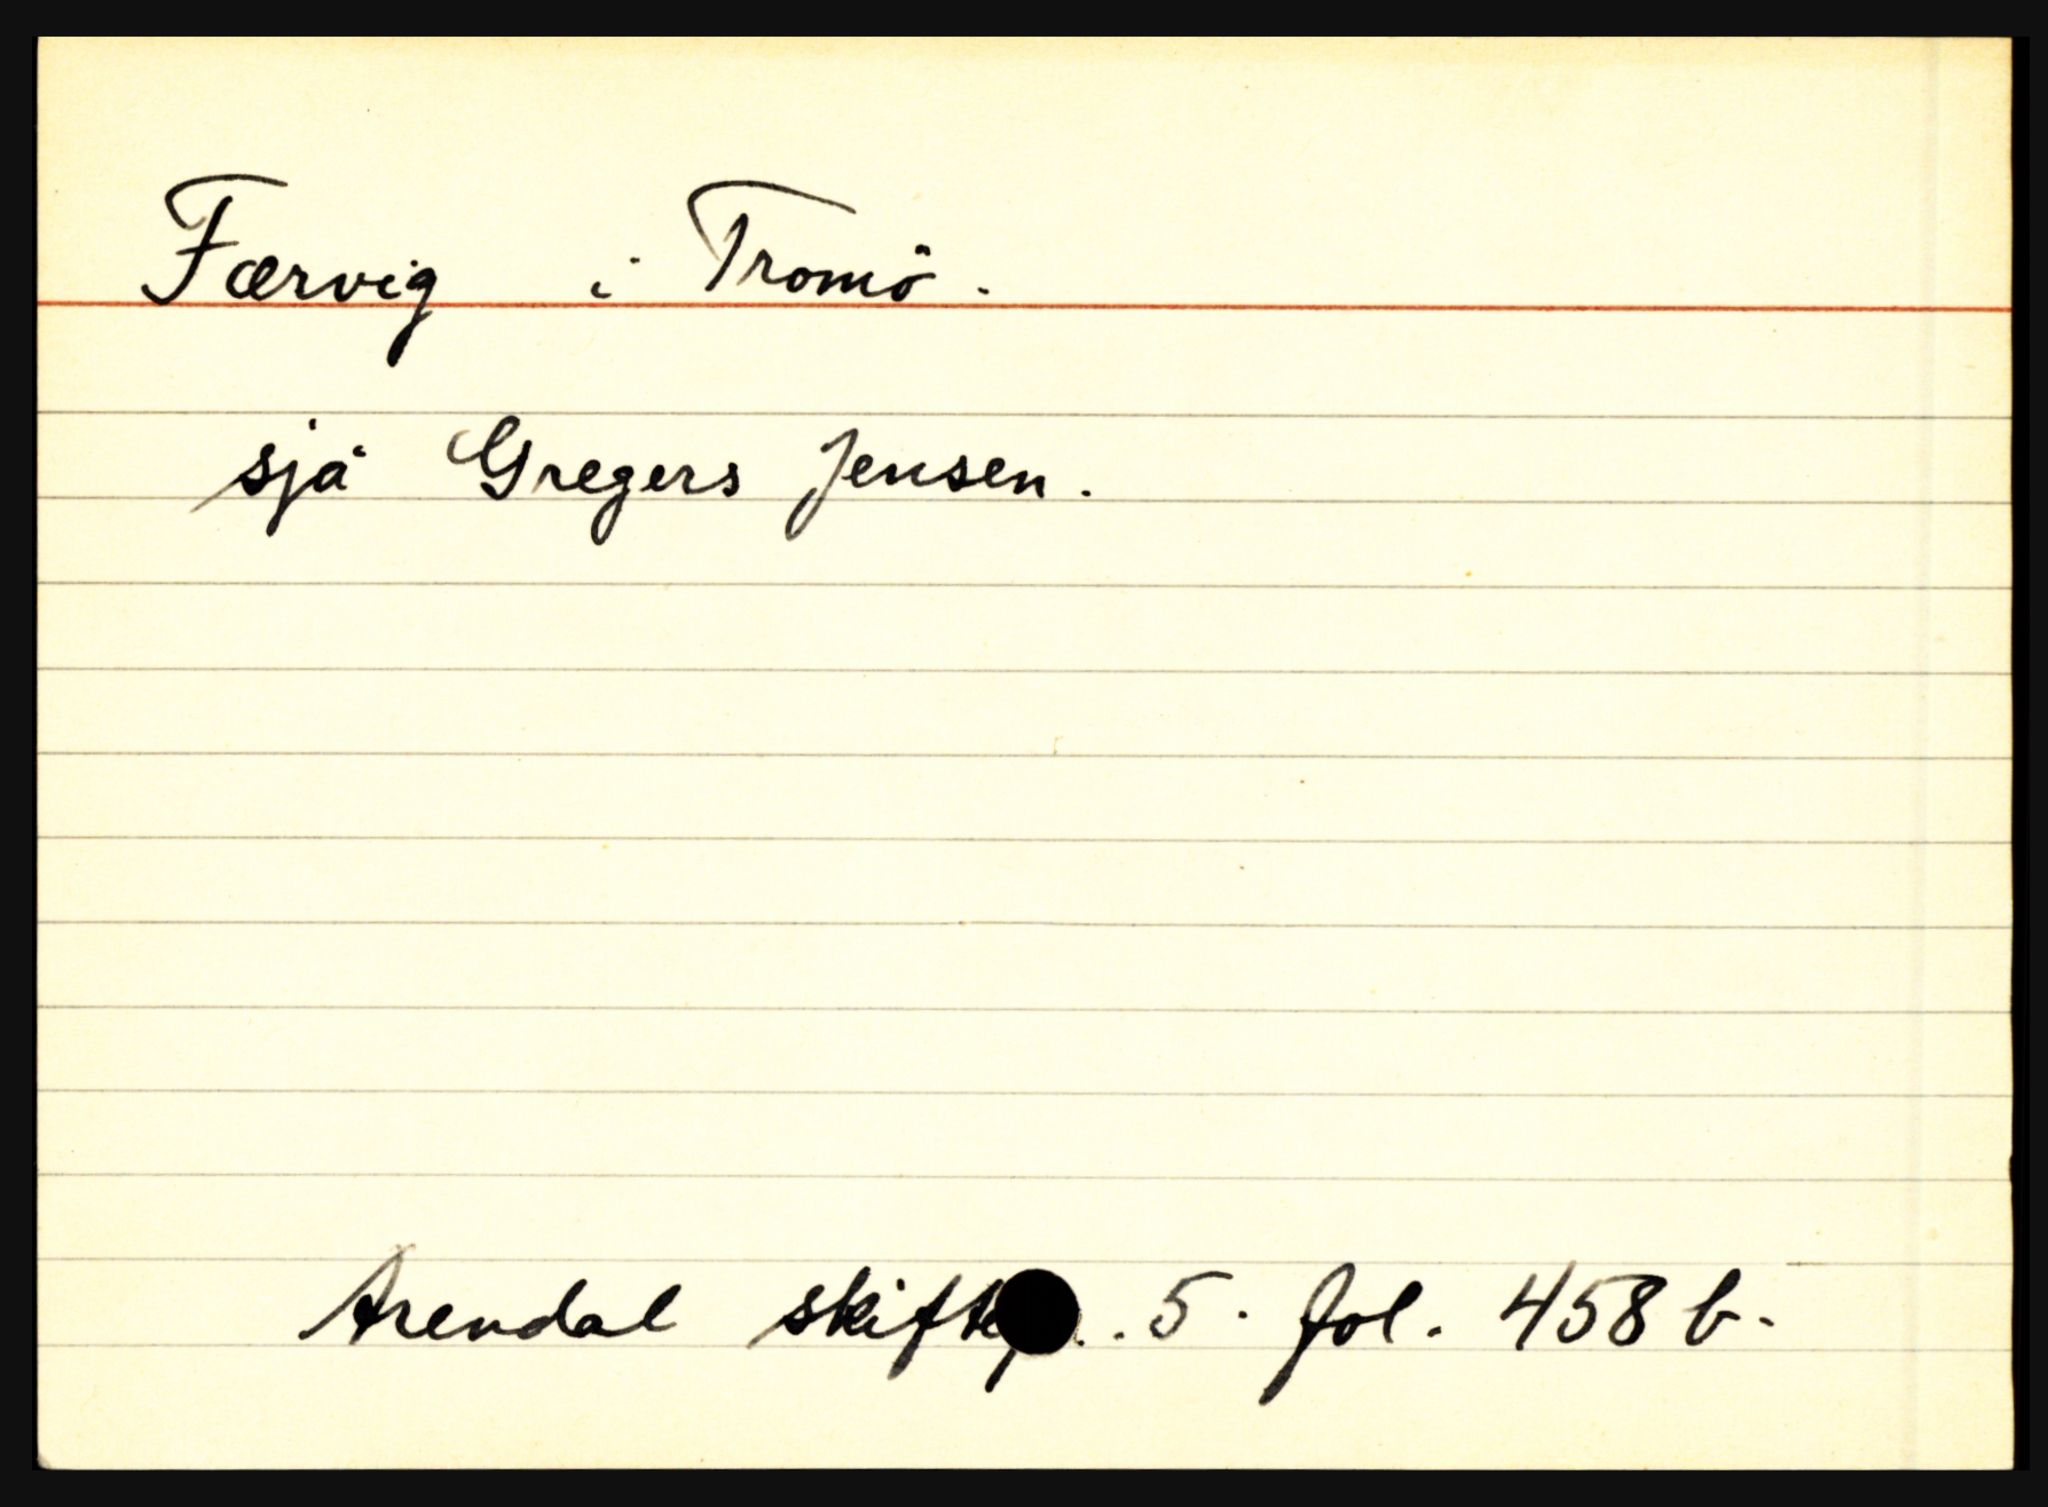 Færvig i Tromö.
sjå Gregers Jensen.
Arendal 5. fol. 458 b.